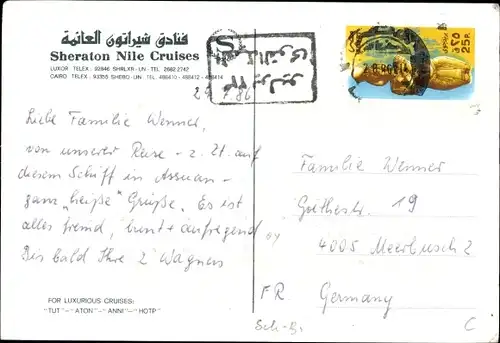 فنادق شيراتون العائمة
Sheraton Nile Cruises
LUXOR TELEX. 92846 SHRLXR-UN-TEL. 2682-2742
CAIRO TELEX. 93356 SHEBO-UN- TEL. 488410 - 488412 - 488414
Liebe Familie Wenner,
von unserer Reise - z. Zt. auf
diesem Schiff in Assuan -
ganz "heiße" Grüße. Es ist
alles fremd, bunt + aufregend
Bis bald Ihre 2 Wagners
FOR LUXURIOUS CRUISES:
"TUT"-"ATON"-"ANNI"-"HOTP"
S
٢٥
25P.
Familie Wenner
Goethestr. 19
4005 Meerbusch 2
FR. Germany
C